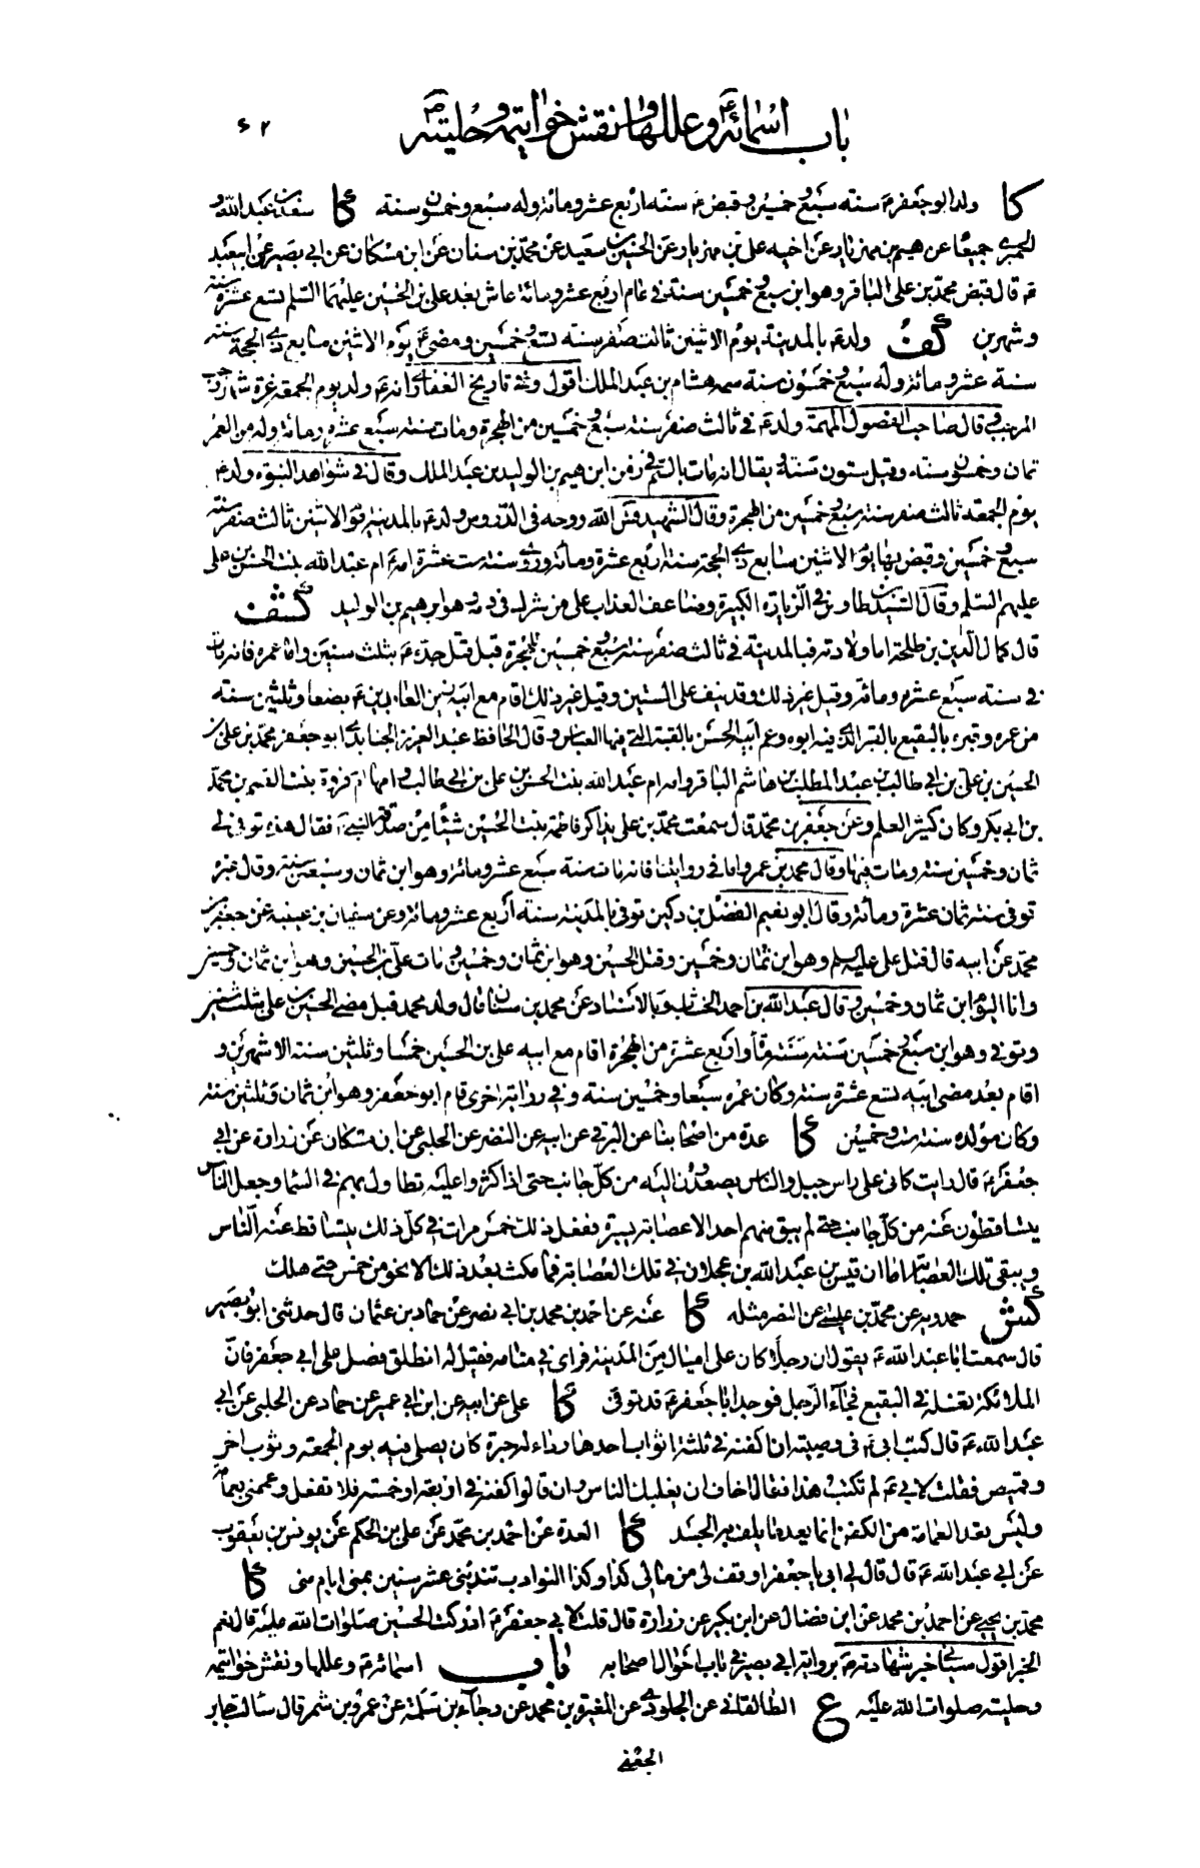 باب اسمائه ع وعللها ونقش خواتيمه وحليته ص ٦٢
كا ولد ابو جعفر ع سنة سبع وخمسين وقبض ع سنة اربع عشر ومائة وله سبع وخمسون سنة كا سعد بن عبد الله و
الحميري جميعا عن ابرهيم بن مهزيار عن اخيه على بن مهزيار عن الحسين بن سعيد عن محمد بن سنان عن ابن مسكان عن ابي بصير عن ابيعبد الله
ع قال قبض محمد بن على الباقر وهو ابن سبع وخمسين سنة في عام اربع عشر ومائة عاش بعد على بن الحسين عليهما السلم تسع عشرة سنة
وشهرين كف ولد ع بالمدينة يوم الاثنين ثالث صفر سنة تسع وخمسين ومضى ع يوم الاثنين سابع ذي الحجة سنة
ستة عشر ومائة وله سبع وخمسون سنة سمه هشام بن عبد الملك اقول وفي تاريخ الغفاري انه ع ولد يوم الجمعة غرة شهر رجب
المرجب قال صاحب الفصول المهمة ولد ع في ثالث صفر سنة سبع وخمسين من الهجرة ومات سنة سبع عشرة ومائة وله من العمر
ثمان وخمسون سنة وقيل ستون سنة ويقال انه مات بالسم في زمن ابرهيم بن الوليد بن عبد الملك وقال في شواهد النبوة ولد ع
يوم الجمعة ثالث صفر سنة سبع وخمسين من الهجرة وقال الشهيد قدس الله روحه في الدروس ولد ع بالمدينة يوم الاثنين ثالث صفر سنة
سبع وخمسين وقبض بها يوم الاثنين سابع ذي الحجة سنة اربع عشرة ومائة وروي سنة ست عشرة امه ام عبد الله بنت الحسن بن على
عليهم السلم وقال السيد بن طاوس في الزيارة الكبيرة وضاعف العذاب على من شرك في دمه وهو ابرهيم بن الوليد كشف
قال كمال الدين بن طلحة اما ولادته فبالمدينة في ثالث صفر سنة سبع وخمسين للهجرة قبل قتل جده ع بثلث سنين واما عمره فانه مات
في سنة سبع عشرة ومائة وقيل غير ذلك وقد نيف على الستين وقيل غير ذلك اقام مع ابيه زين العابدين ع بضعا وثلثين سنة
من عمره وقبره بالبقيع بالقبر الذي فيه ابوه وعم ابيه الحسن بالقبة التي فيها العباس وقال الحافظ عبد العزيز الجنابذي ابو جعفر محمد بن على بن
الحسين بن على بن ابي طالب بن عبد المطلب بن هاشم الباقر وامه ام عبد الله بنت الحسن بن على بن ابي طالب وامها ام فروة بنت القسم بن محمد
بن ابي بكر وكان كثير العلم وعن جعفر بن محمد قال سمعت محمد بن على يذاكر فاطمة بنت الحسين شيئا من صدقة النبي ص فقال هذه توفي لي
ثمان وخمسين سنة ومات فيها وقال محمد بن عمرو اما في روايتنا فانه مات سنة سبع عشر ومائة وهو ابن ثمان وسبعين سنة وقال غيره
توفي سنة ثمان عشرة ومائة وقال ابو نعيم الفضل بن دكين توفي بالمدينة سنة اربع عشر ومائة وعن سفيان بن عيينة عن جعفر بن
محمد عن ابيه قال قتل على عليه السلم وهو ابن ثمان وخمسين وقتل الحسين وهو ابن ثمان وخمسين ومات على بن الحسين وهو ابن ثمان وخمسين
وانا اليوم ابن ثمان وخمسين وقال عبد الله بن احمد الخشاب وبالاسناد عن محمد بن سنان قال ولد محمد قبل مضى الحسين بن على بثلث سنين
وتوفي وهو ابن سبع وخمسين سنة سنة مأة واربع عشرة من الهجرة اقام مع ابيه على بن الحسين خمسا وثلثين سنة الا شهرين و
اقام بعد مضى ابيه تسع عشرة سنة وكان عمره سبعا وخمسين سنة وفي رواية اخرى قام ابو جعفر وهو ابن ثمان وثلثين سنة
وكان مولده سنة ست وخمسين كا عدة من اصحابنا عن البرقي عن ابيه عن النضر عن الحلبي عن ابن مسكان عن زرارة عن ابي
جعفر ع قال رايت كاني على راس جبل والناس يصعدون اليه من كل جانب حتى اذا كثروا عليه تطاول بهم في السماء وجعل الناس
يتساقطون عنه من كل جانب حتى لم يبق منهم احد الا عصابة يسيرة ففعل ذلك خمس مرات في كل ذلك يتساقط عنه الناس
ويبقى تلك العصابة اما ان قيس بن عبد الله بن عجلان في تلك العصابة فما مكث بعد ذلك الا نحو من خمس حتى هلك
كش حمدويه عن محمد بن عيسى عن النضر مثله كا عنه عن احمد بن محمد بن ابي نصر عن حماد بن عثمان قال حدثني ابو بصير
قال سمعت ابا عبد الله ع يقول ان رجلا كان على اميال من المدينة فراى في منامه فقيل له انطلق فصل على ابي جعفر فان
الملائكة تغسله في البقيع فجاء الرجل فوجد ابا جعفر ع قد توفي كا على عن ابيه عن ابن ابي عمير عن حماد عن الحلبي عن ابي
عبد الله ع قال كتب ابي ع في وصيته ان اكفنه في ثلثة اثواب احدها رداء له حبرة كان يصلى فيه يوم الجمعة وثوب اخر
وقميص فقلت لابي ع لم تكتب هذا فقال اخاف ان يغلبك الناس وان قالوا كفنه في اربعة او خمسة فلا تفعل وعممني بعمامة
وليس يعد العمامة من الكفن انما يعد ما يلف به الجسد كا العدة عن احمد بن محمد عن على بن الحكم عن يونس بن يعقوب
عن ابي عبد الله ع قال قال لي ابي يا جعفر اوقف لي من مالي كذا وكذا النوادب تندبني عشر سنين بمنى ايام منى كا
محمد بن يحيى عن احمد بن محمد عن ابن فضال عن ابن بكير عن زرارة قال قلت لابي جعفر ع ادركت الحسين صلوات الله عليه قال نعم
الخبر اقول سياتي اخبر شهادته ع برواية ابي بصير في باب احوال اصحابه باب اسمائه ع وعللها ونقش خواتيمه
وحليته صلوات الله عليه ع الطالقاني عن الجلودي عن المغيرة بن محمد عن رجاء بن سلمة عن عمرو بن شمر قال سالت جابر
الجعفي